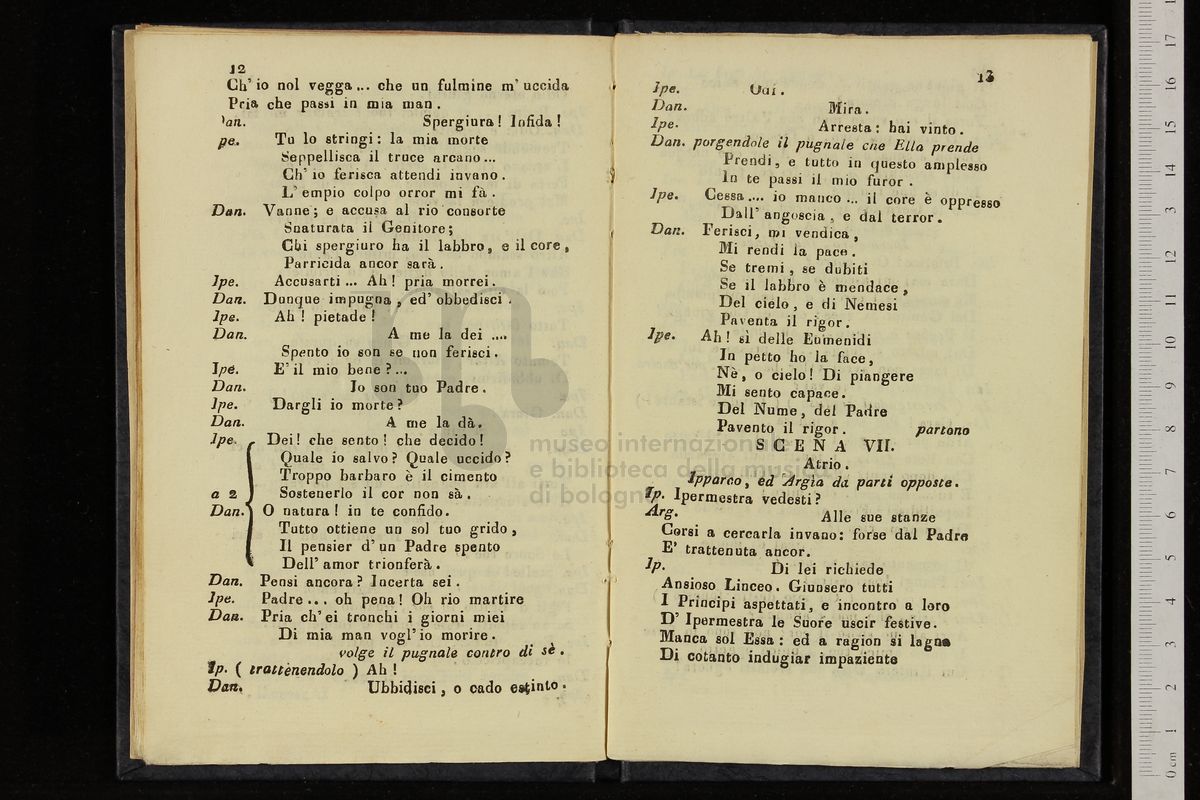 12
Ch' io nol vegga... che un fulmine m' uccida
Pria che passi in mia man.
an. Spergiura! Infida!
pe. Tu lo stringi: la mia morte
Seppellisca il truce arcano...
Ch' io ferisca attendi invano.
L' empio colpo orror mi fà.
Dan. Vanne; e accusa al rio consorte
Snaturata il Genitore;
Chi spergiuro ha il labbro, e il core,
Parricida ancor sarà.
Ipe. Accusarti... Ah! pria morrei.
Dan. Dunque impugna, ed' obbedisci.
Ipe. Ah! pietade!
Dan. A me la dei ....
Spento io son se non ferisci.
Ipe. E' il mio bene?...
Dan. Io son tuo Padre.
Ipe. Dargli io morte?
Dan. A me la dà.
Ipe. Dei! che sento! che decido!
Quale io salvo? Quale uccido?
Troppo barbaro è il cimento
a 2 Sostenerlo il cor non sà.
Dan. O natura! in te confido.
Tutto ottiene un sol tuo grido,
Il pensier d' un Padre spento
Dell' amor trionferà.
Dan. Pensi ancora? Incerta sei.
Ipe. Padre... oh pena! Oh rio martire
Dan. Pria ch' ei tronchi i giorni miei
Di mia man vogl' io morire.
volge il pugnale contro di sè.
Ip. ( trattenendolo ) Ah!
Dan. Ubbidisci, o cado estinto.
13
Ipe. Odi.
Dan. Mira.
Ipe. Arresta: hai vinto.
Dan. porgendole il pugnale che Ella prende
Prendi, e tutto in questo amplesso
In te passi il mio furor.
Ipe. Cessa.... io manco... il core è oppresso
Dall' angoscia, e dal terror.
Dan. Ferisci, mi vendica,
Mi rendi la pace.
Se tremi, se dubiti
Se il labbro è mendace,
Del cielo, e di Nemesi
Paventa il rigor.
Ipe. Ah! sì delle Eumenidi
In petto ho la face,
Nè, o cielo! Di piangere
Mi sento capace.
Del Nume, del Padre
Pavento il rigor. partono
SCENA VII.
Atrio.
Ipparco, ed Argia da parti opposte.
Ip. Ipermestra vedesti?
Arg. Alle sue stanze
Corsi a cercarla invano: forse dal Padre
E' trattenuta ancor.
Ip. Di lei richiede
Ansioso Linceo. Giunsero tutti
I Principi aspettati, e incontro a loro
D' Ipermestra le Suore uscir festive.
Manca sol Essa: ed a ragion si lagna
Di cotanto indugiar impaziente
museo internazionale
e biblioteca della musica
di bologna
0 cm 1 2 3 4 5 6 7 8 9 10 11 12 13 14 15 16 17